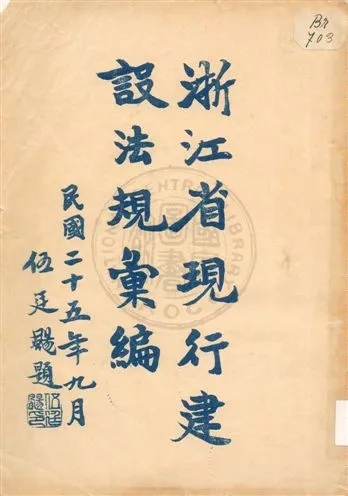 Br
703
浙江省現行建
設法規彙編
民國二十五年九月
伍廷颺題
NATIONAL CENTRAL LIBRARY